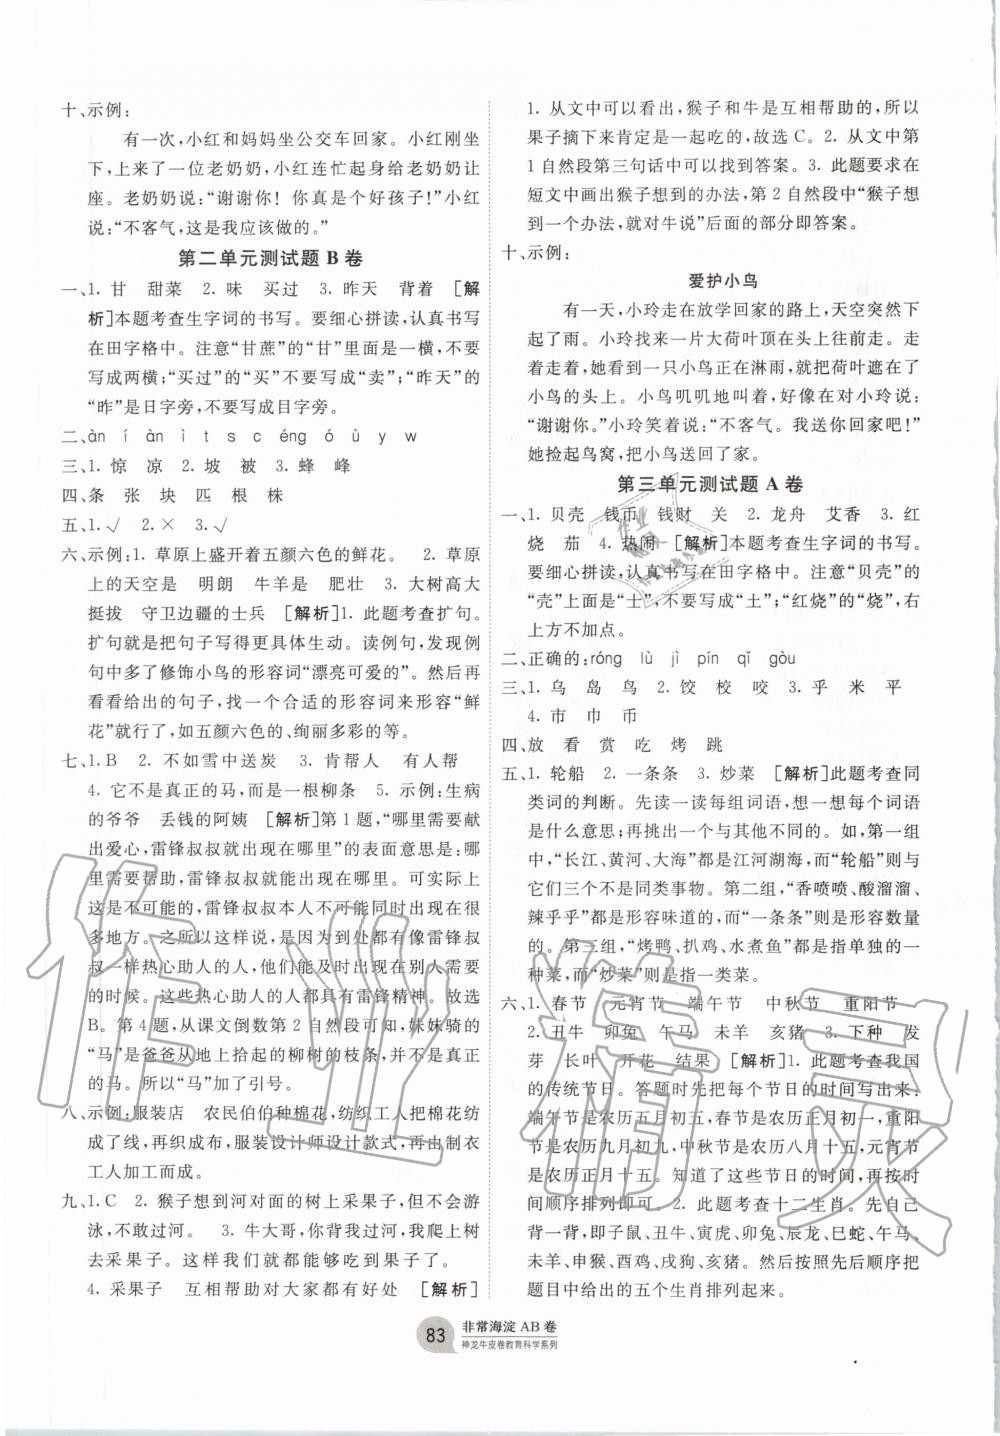 十、示例：
有一次，小红和妈妈坐公交车回家。小红刚坐
下，上来了一位老奶奶，小红连忙起身给老奶奶让
座。老奶奶说：“谢谢你！你真是个好孩子！”小红
说：“不客气，这是我应该做的。”
第二单元测试题 B 卷
一、1. 甘 甜菜 2. 味 买过 3. 昨天 背着 [解
析]本题考查生字词的书写。要细心拼读，认真书写
在田字格中。注意“甘蔗”的“甘”里面是一横，不要
写成两横；“买过”的“买”不要写成“卖”；“昨天”的
“昨”是日字旁，不要写成目字旁。
二、àn í àn ì t s c éng ó ù y w
三、1. 惊 凉 2. 坡 被 3. 蜂 峰
四、条 张 块 匹 根 株
五、1. √ 2. × 3. √
六、示例：1. 草原上盛开着五颜六色的鲜花。 2. 草原
上的天空是 明朗 牛羊是 肥壮 3. 大树高大
挺拔 守卫边疆的士兵 [解析]1. 此题考查扩句。
扩句就是把句子写得更具体生动。读例句，发现例
句中多了修饰小鸟的形容词“漂亮可爱的”。然后再
看看给出的句子，找一个合适的形容词来形容“鲜
花”就行了，如五颜六色的、绚丽多彩的等。
七、1. B 2. 不如雪中送炭 3. 肯帮人 有人帮
4. 它不是真正的马，而是一根柳条 5. 示例：生病
的爷爷 丢钱的阿姨 [解析]第 1 题，“哪里需要献
出爱心，雷锋叔叔就出现在哪里”的表面意思是：哪
里需要帮助，雷锋叔叔就能出现在哪里。可实际上
这是不可能的，因为雷锋叔叔本人不可能出现在很
多地方。之所以这样说，是因为到处都有像雷锋叔
叔一样热心助人的人，他们会出现在人们需要帮助
的时候。这些热心助人的人都具有雷锋精神。故选
B。第 4 题，从课文倒数第 2 自然段可知，妹妹骑的
“马”是爸爸从地上拾起的柳树的树枝，并不是真正
的马。所以“马”加了引号。
八、示例：服装店 农民伯伯种棉花，纺织工人把棉花纺
成了线，再织成布，服装设计师设计款式，再由制衣
工人加工而成。
九、1. C 2. 猴子想到河对面的树上采果子，但不会游
泳，不敢过河。 3. 牛大哥，你背我过河，我爬上树
去采果子。这样我们就都能够吃到果子了。
4. 采果子 互相帮助对大家都有好处 [解析]
1. 从文中可以看出，猴子和牛是互相帮助的，所以
果子摘下来肯定是一起吃的，故选 C。2. 从文中第
1 自然段第三句话中可以找到答案。3. 此题要求在
短文中画出猴子想到的办法，第 2 自然段中“猴子想
到一个办法，就对牛说”后面的部分即答案。
十、示例：
爱护小鸟
有一天，小玲走在放学回家的路上，天空突然下
起了雨，小玲找来一片大荷叶顶在头上往前走。走
着走着，她看见一只小鸟正在淋雨，就把荷叶遮在了
小鸟的头上。小鸟叽叽地叫着，好像在对小玲说：
“谢谢你。”小玲笑着说：“不客气。这是我应该做的！”
她捡起鸟窝，把小鸟送回了家。
第三单元测试题 A 卷
一、1. 贝壳 钱币 钱财 关 2. 龙舟 艾香 3. 红
烧 茄 4. 热闹 [解析]本题考查生字词的书写。
要细心拼读，认真书写在田字格中。注意“贝壳”的
“壳”上面是“士”，不要写成“土”；“红烧”的“烧”，右
上方不加点。
二、正确的：róng lù jì pín qǐ gòu
三、1. 乌 岛 鸟 2. 饺 校 咬 3. 乎 米 平
4. 市 巾 币
四、放 看 赏 吃 烤 跳
五、1. 轮船 2. 一条条 3. 炒菜 [解析]此题考查同
类词的判断。先读一读每组词语，想一想每个词语
是什么意思；再挑出一个与其他不同的。如，第一组
中，“长江、黄河、大海”都是江河湖海，而“轮船”则与
它们三个不是同类事物。第二组，“香喷喷、酸溜溜、
辣乎乎”都是形容味道的，而“一条条”是形容数量
的。第三组，“烤鸭、扒鸡、水煮鱼”都是指单独的一
种菜，而“炒菜”则是指一类菜。
六、1. 春节 元宵节 端午节 中秋节 重阳节
2. 丑牛 卯兔 午马 未羊 亥猪 3. 下种 发
芽 长叶 开花 结果 [解析]1. 此题考查我国
的传统节日。答题时要先把每个节日的时间写出来：
端午节是农历五月初五，春节是农历正月初一，重阳
节是农历九月初九，中秋节是农历八月十五，元宵节
是农历正月十五。知道了这些节日的时间，再按时
间顺序排列即可。2. 此题考查十二生肖。先把自己
知道的生肖写出来：子鼠、丑牛、寅虎、卯兔、辰龙、巳蛇、午马、
未羊、申猴、酉鸡、戌狗、亥猪。然后按照先后顺序把
题目中的五个生肖排列起来。
83
非常海淀 AB 卷
神龙牛皮卷教育科学系列
作业精灵